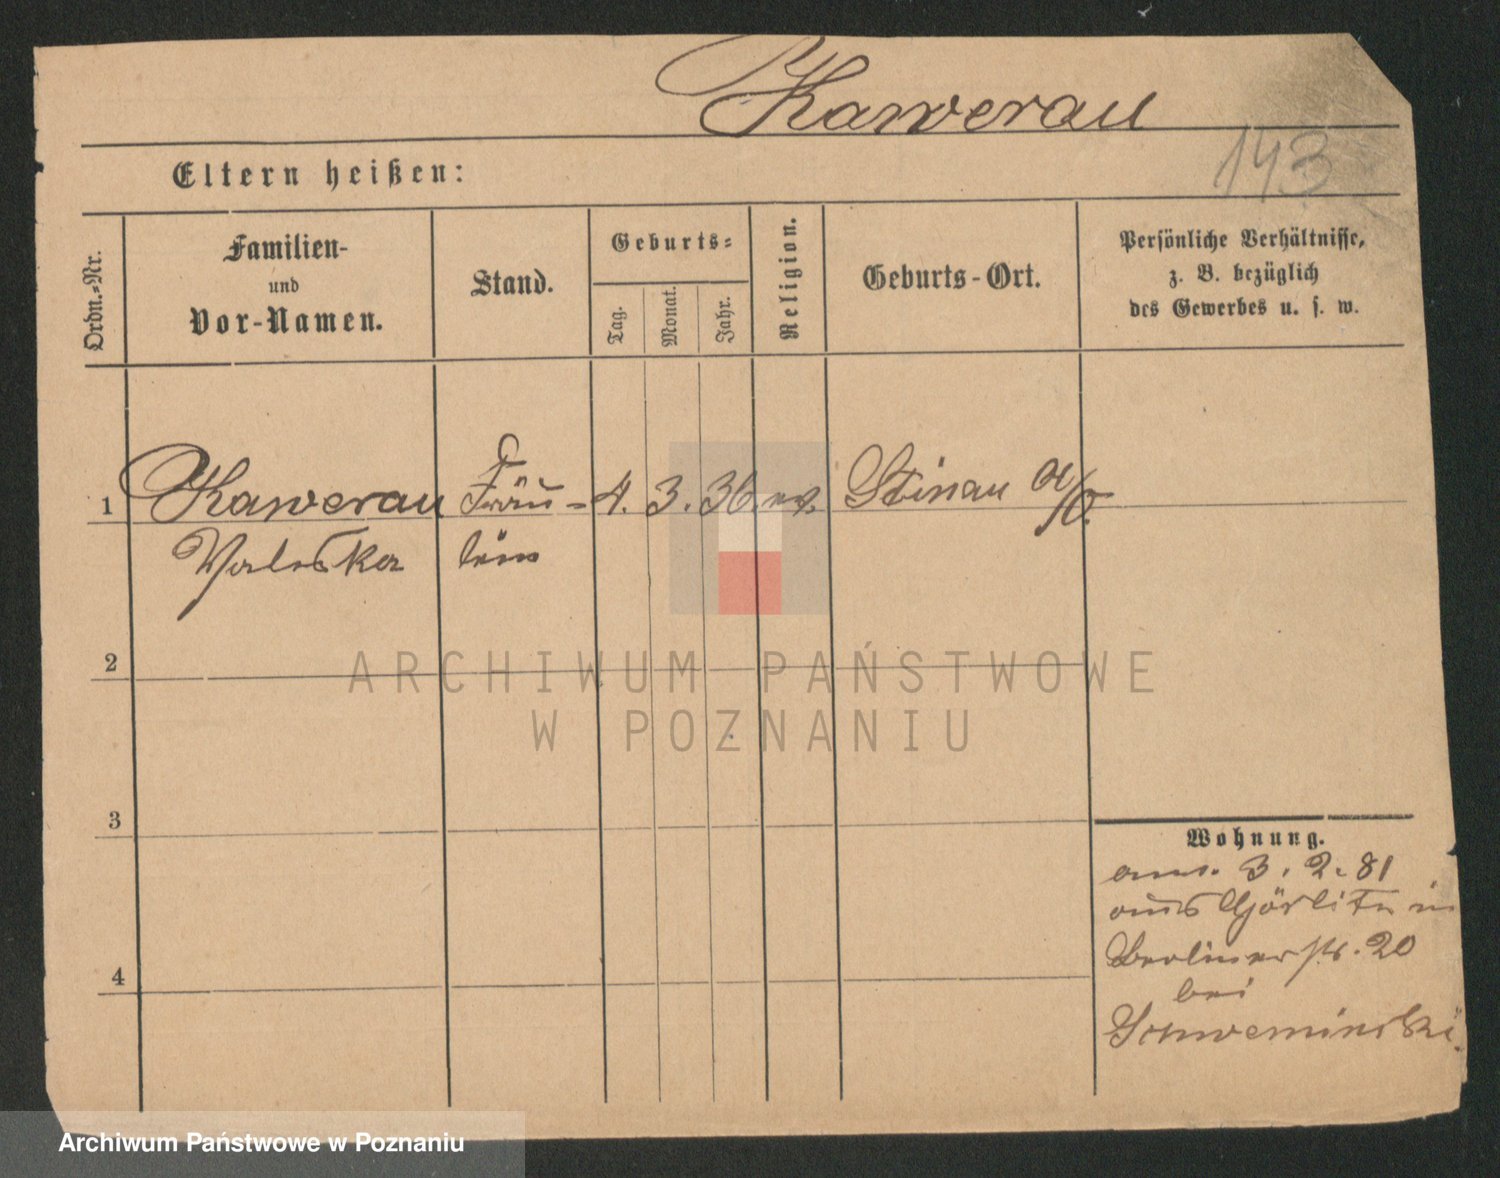 Kawerau
143
Eltern heißen:
Ordn.-Nr.
Familien-
und
Vor-Namen.
Stand.
Geburts-
Tag.
Monat.
Jahr.
Religion.
Geburts-Ort.
Persönliche Verhältnisse,
z. B. bezüglich
des Gewerbes u. s. w.
1 Kawerau Fräu- 4. 3. 36. ev. Steinau a/O.
Valeska lein
2
3
4
Wohnung.
anv. 3. 2. 81
aus Görlitz in
Berlinerstr. 20
bei
Schweminski.
ARCHIWUM PAŃSTWOWE
W POZNANIU
Archiwum Państwowe w Poznaniu